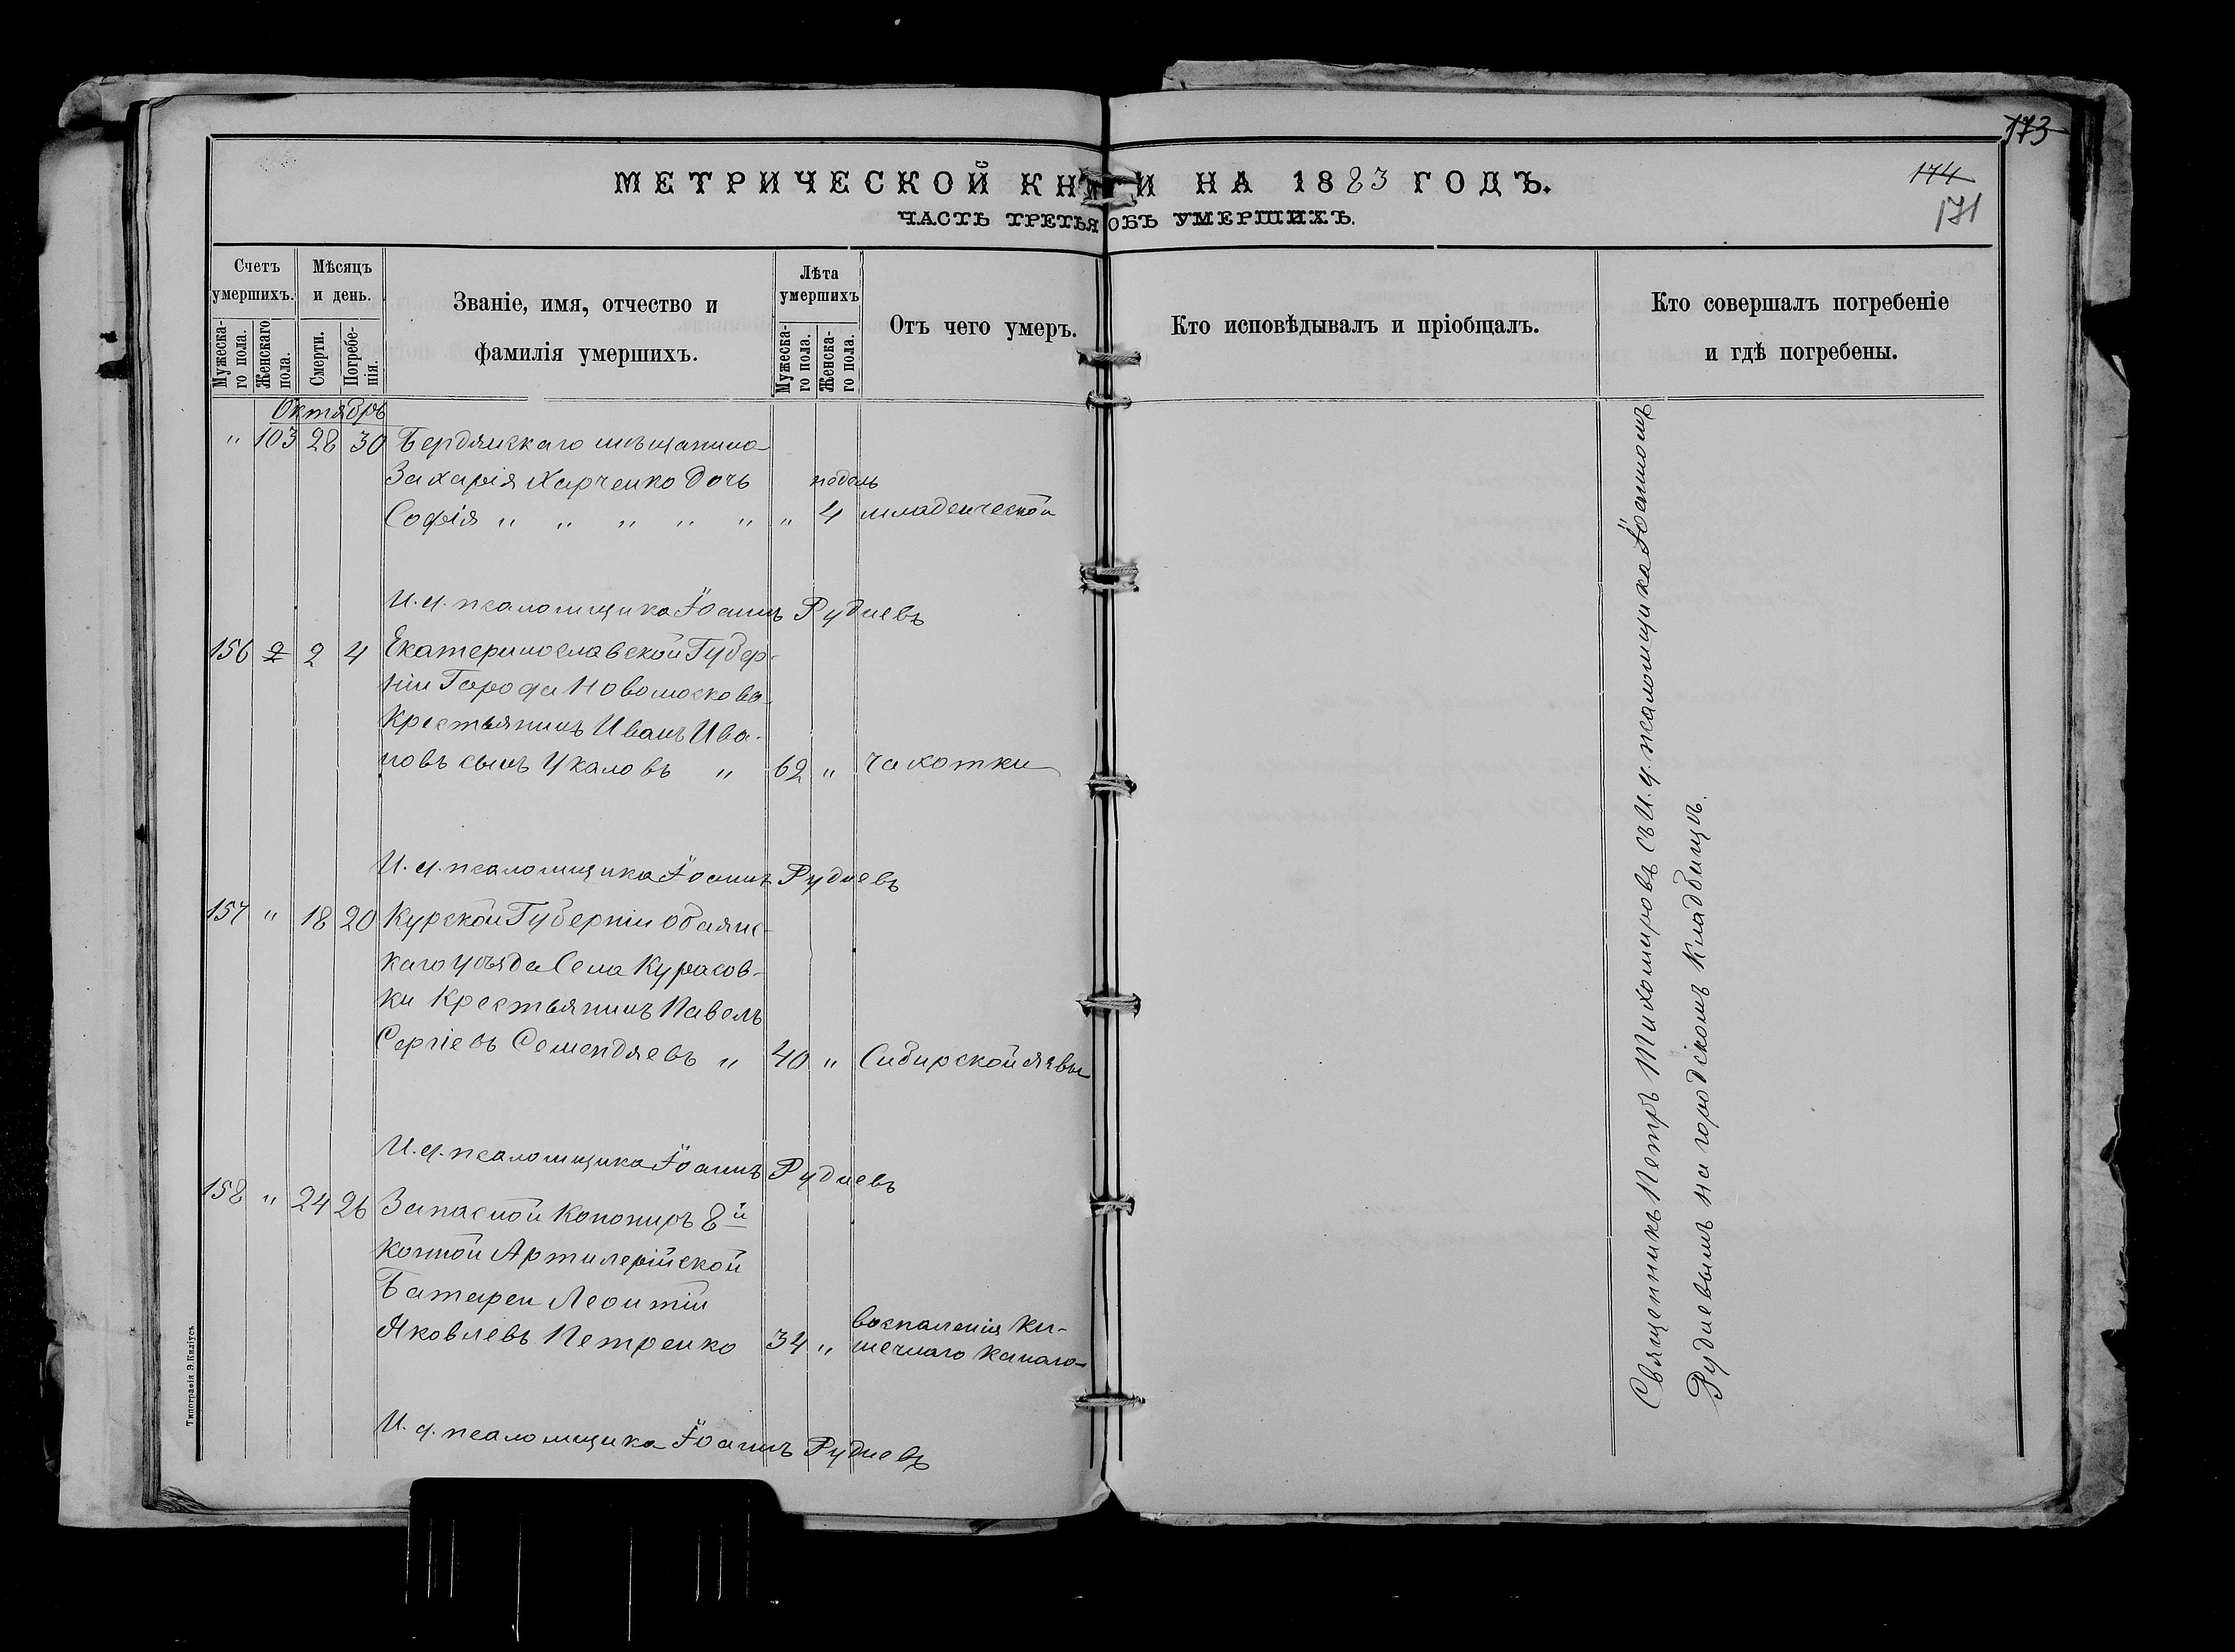 173
174
171
МЕТРИЧЕСКОЙ КНИГИ НА 1883 ГОДЪ.
ЧАСТЬ ТРЕТЬЯ ОБЪ УМЕРШИХЪ.
Счетъ умершихъ.
Мужеска-го пола.
Женскаго пола.
Мѣсяцъ и день.
Смерти.
Погребе-нія.
Званіе, имя, отчество и
фамилія умершихъ.
Лѣта умершихъ
Мужеска-го пола.
Женска-го пола.
Отъ чего умеръ.
Кто исповѣдывалъ и пріобщалъ.
Кто совершалъ погребеніе
и гдѣ погребены.
Октябрь
" 103 28 30 Бердянскаго мѣщанина
Захарія Харченко дочь
Софія " " " " " " 4 младенческой
И. д. псаломщика Іоаннъ Рудневъ
156 2 2 4 Екатеринославской Губер-
ніи Города Новомосковска
Крестьянинъ Иванъ Ива-
новъ сынъ Укаловъ " 62 " чахотки
И. д. псаломщика Іоаннъ Рудневъ
157 " 18 20 Курской Губерніи Обаянс-
каго уѣзда Села Курасов-
ки Крестьянинъ Павелъ
Сергіевъ Семендяевъ " 40 " Сибирской язвы
И. д. псаломщика Іоаннъ Рудневъ
158 " 24 26 Запасной Конониръ 8й
конной Артилерійской
Батареи Леонтій
Яковлевъ Петренко 34 " воспаленія ки-
шечнаго канала
И. д. псаломщика Іоаннъ Рудневъ
Священникъ Петръ Тихомировъ съ И. д. псаломщика Іоанномъ
Рудневымъ на городскомъ кладбищѣ.
Типографія Э. Килусъ